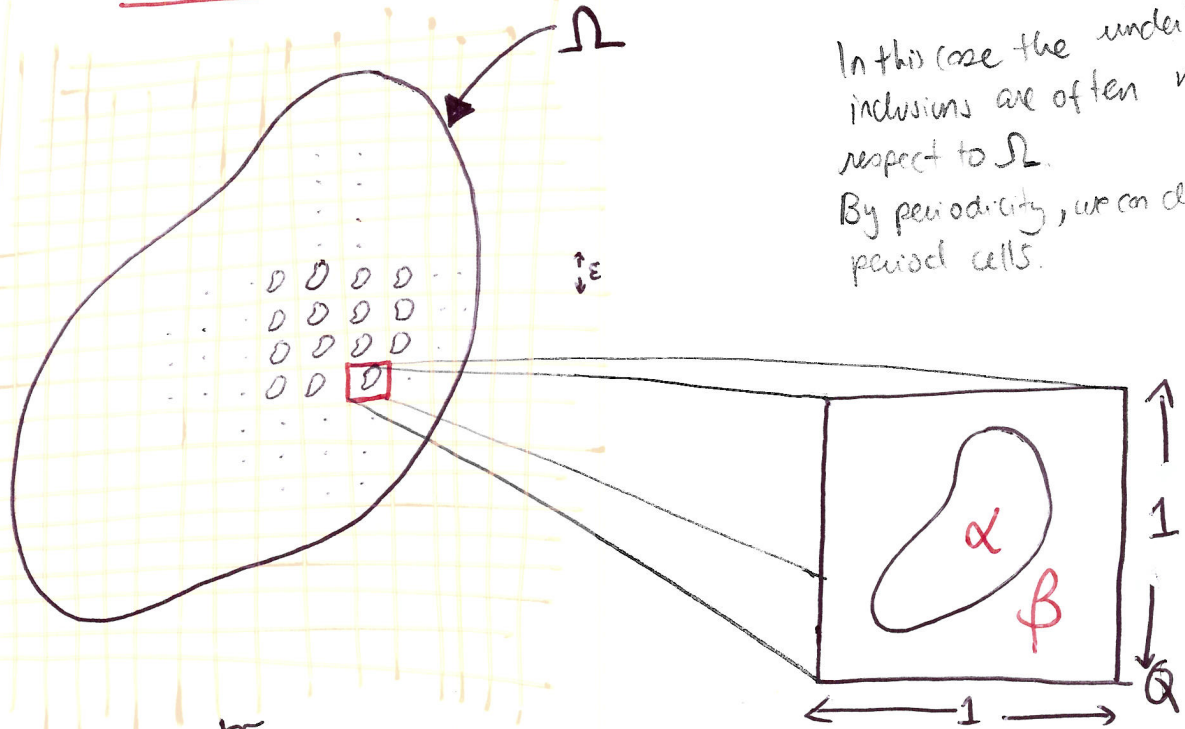 Ω
In this case the unde
inclusions are often
respect to Ω.
By periodicity, we can
period cells.
ε
α
β
1
Q
1